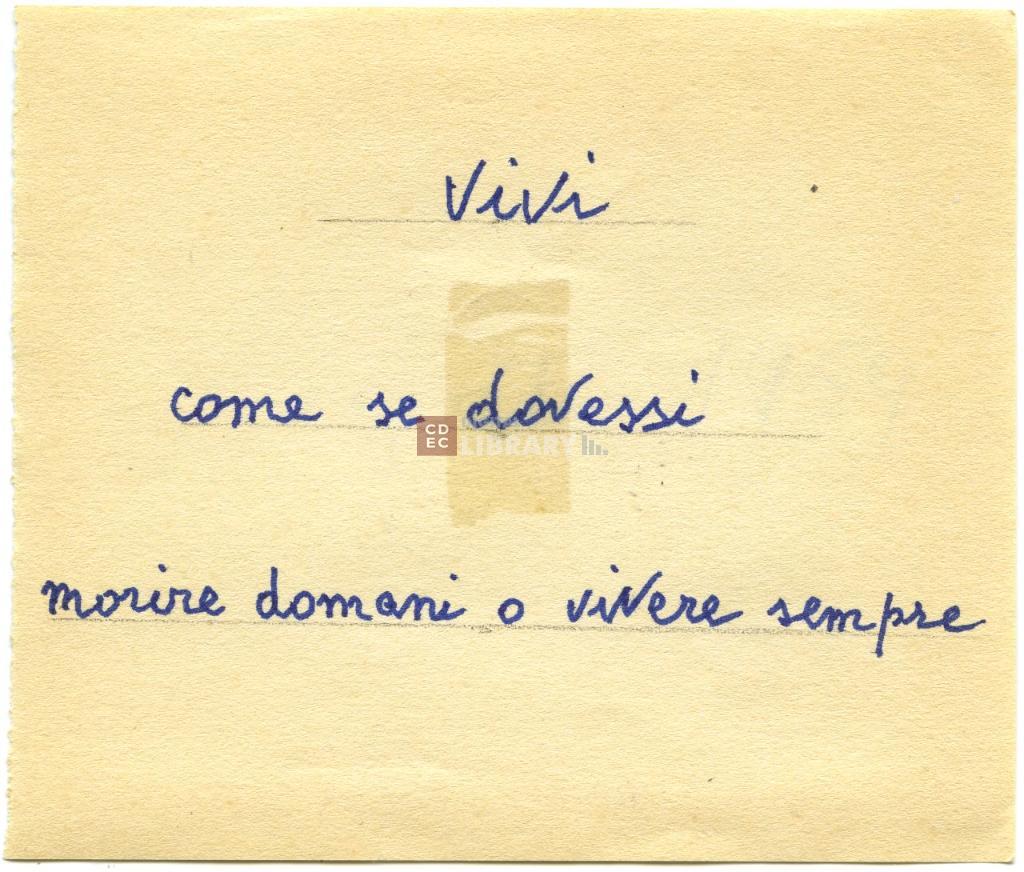 Vivi
come se dovessi
CDEC LIBRARY
morire domani o vivere sempre